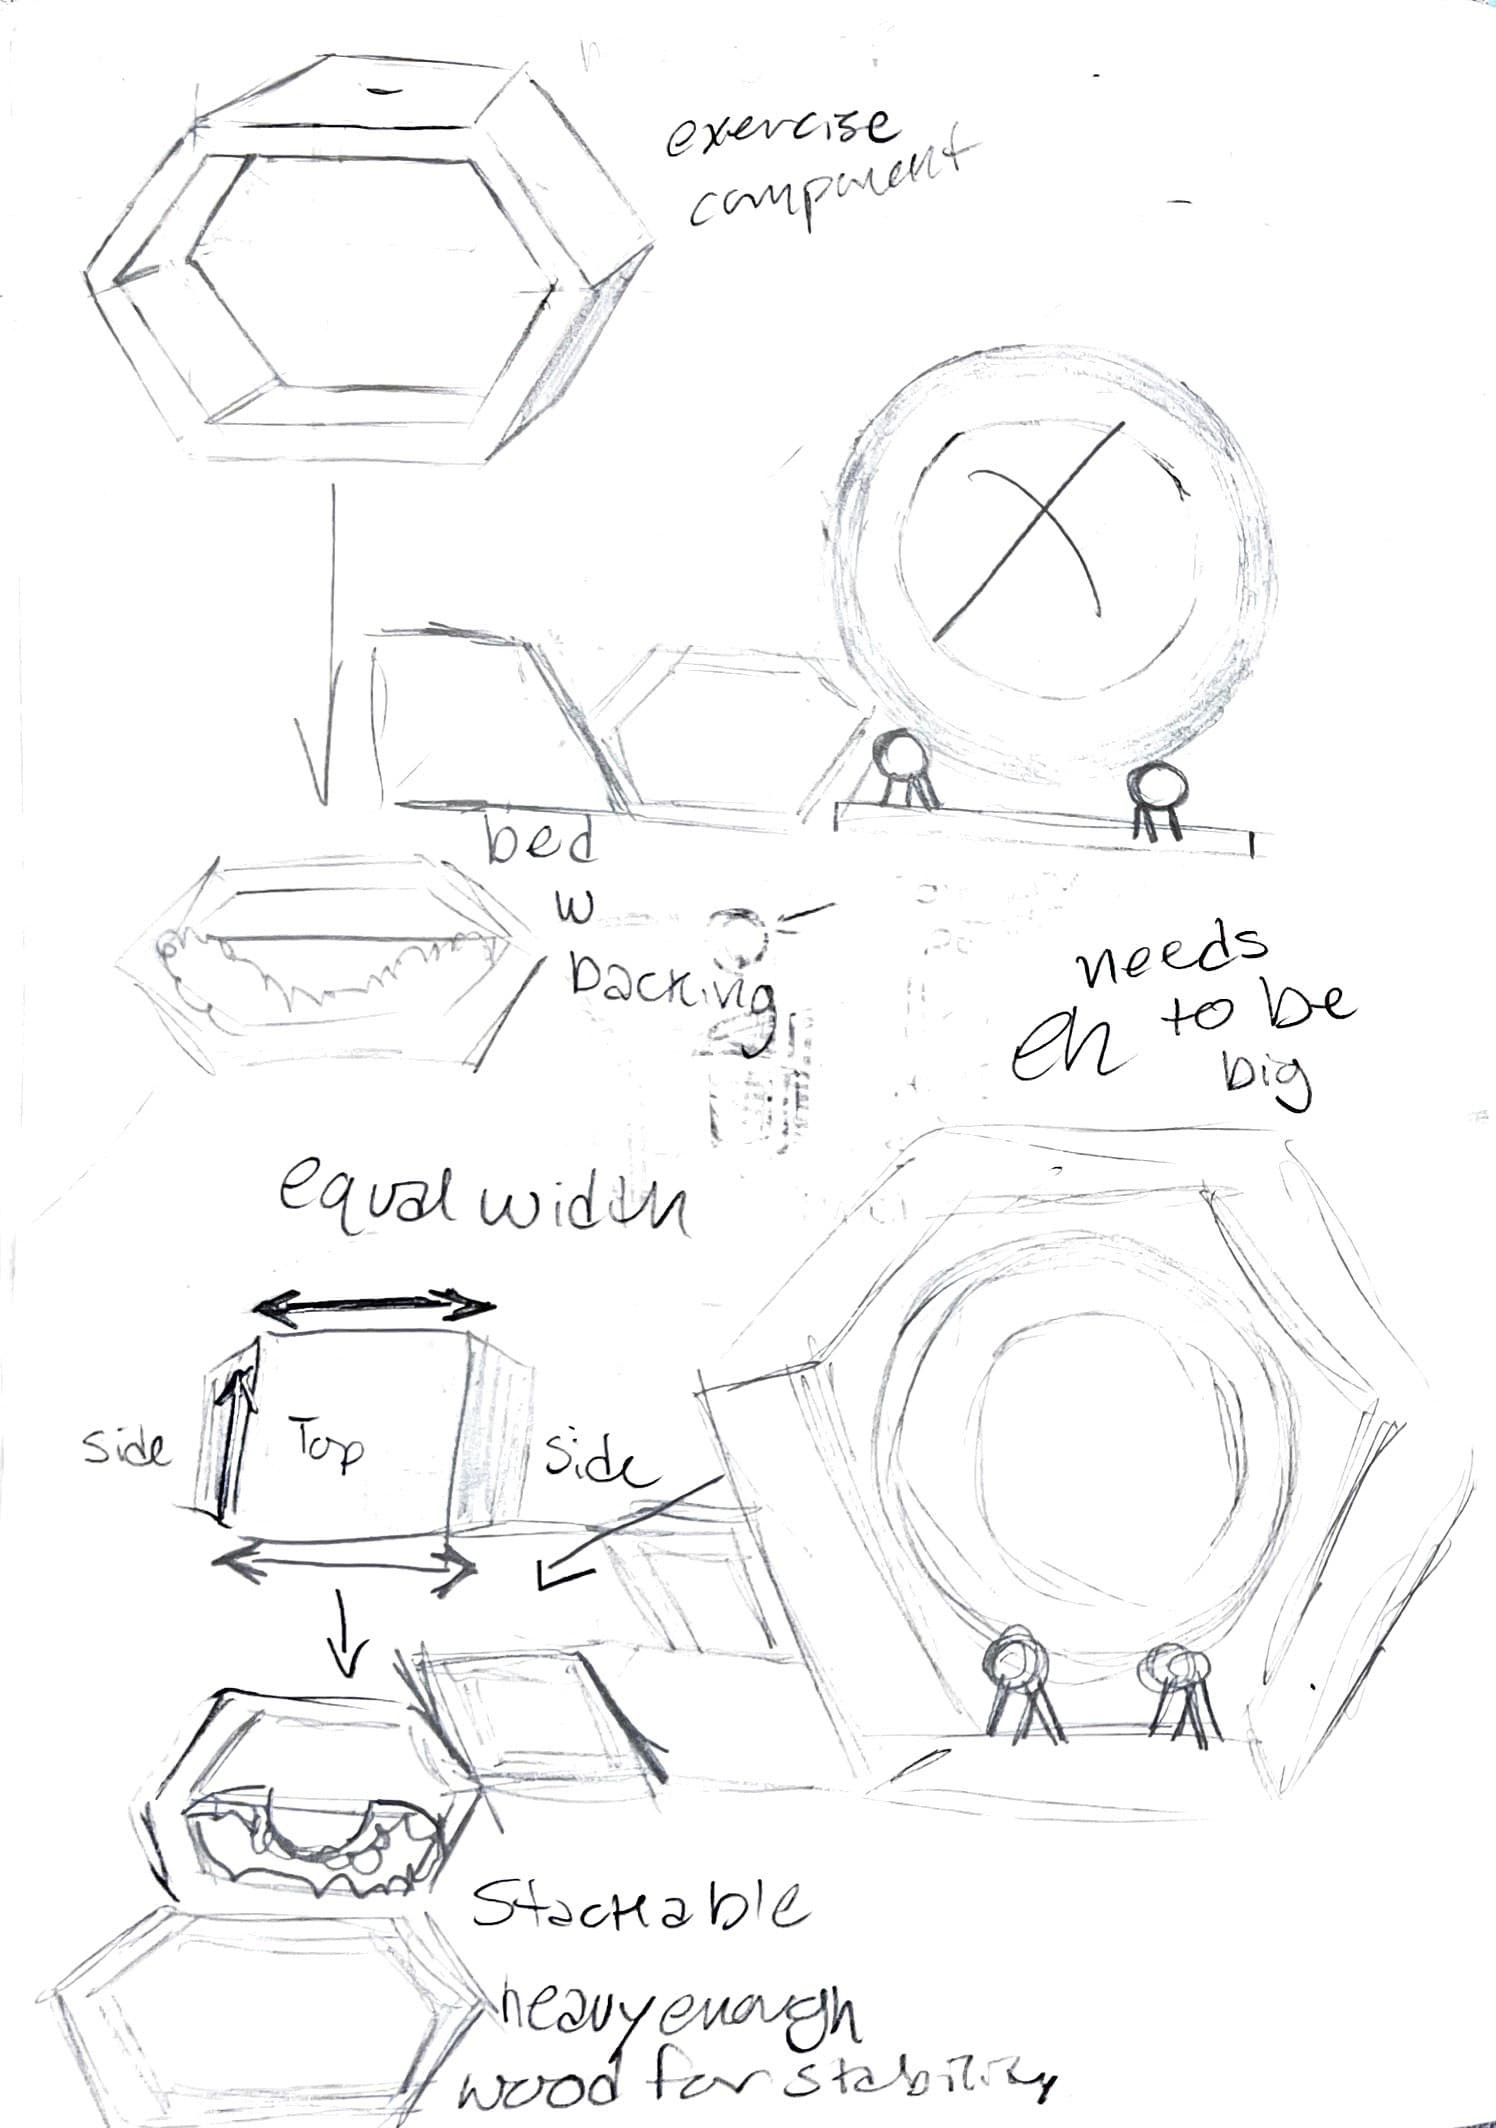 exercise
component
bed
w
backing
needs
eh to be
big
equal width
side
Top
side
Stackable
heavy enough
wood for stability